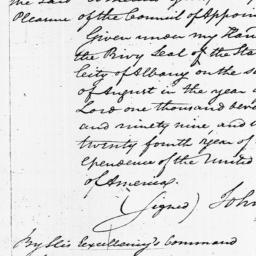 the said
Pleasure of the Council of Appoin
Given under my Han
the Privy Seal of the Sta
City of Albany on the s
of August in the year
Lord one thousand seve
and ninety nine, and
twenty fourth year of
ependence of the United
of America.
(Signed) John
By His Excellency's Command